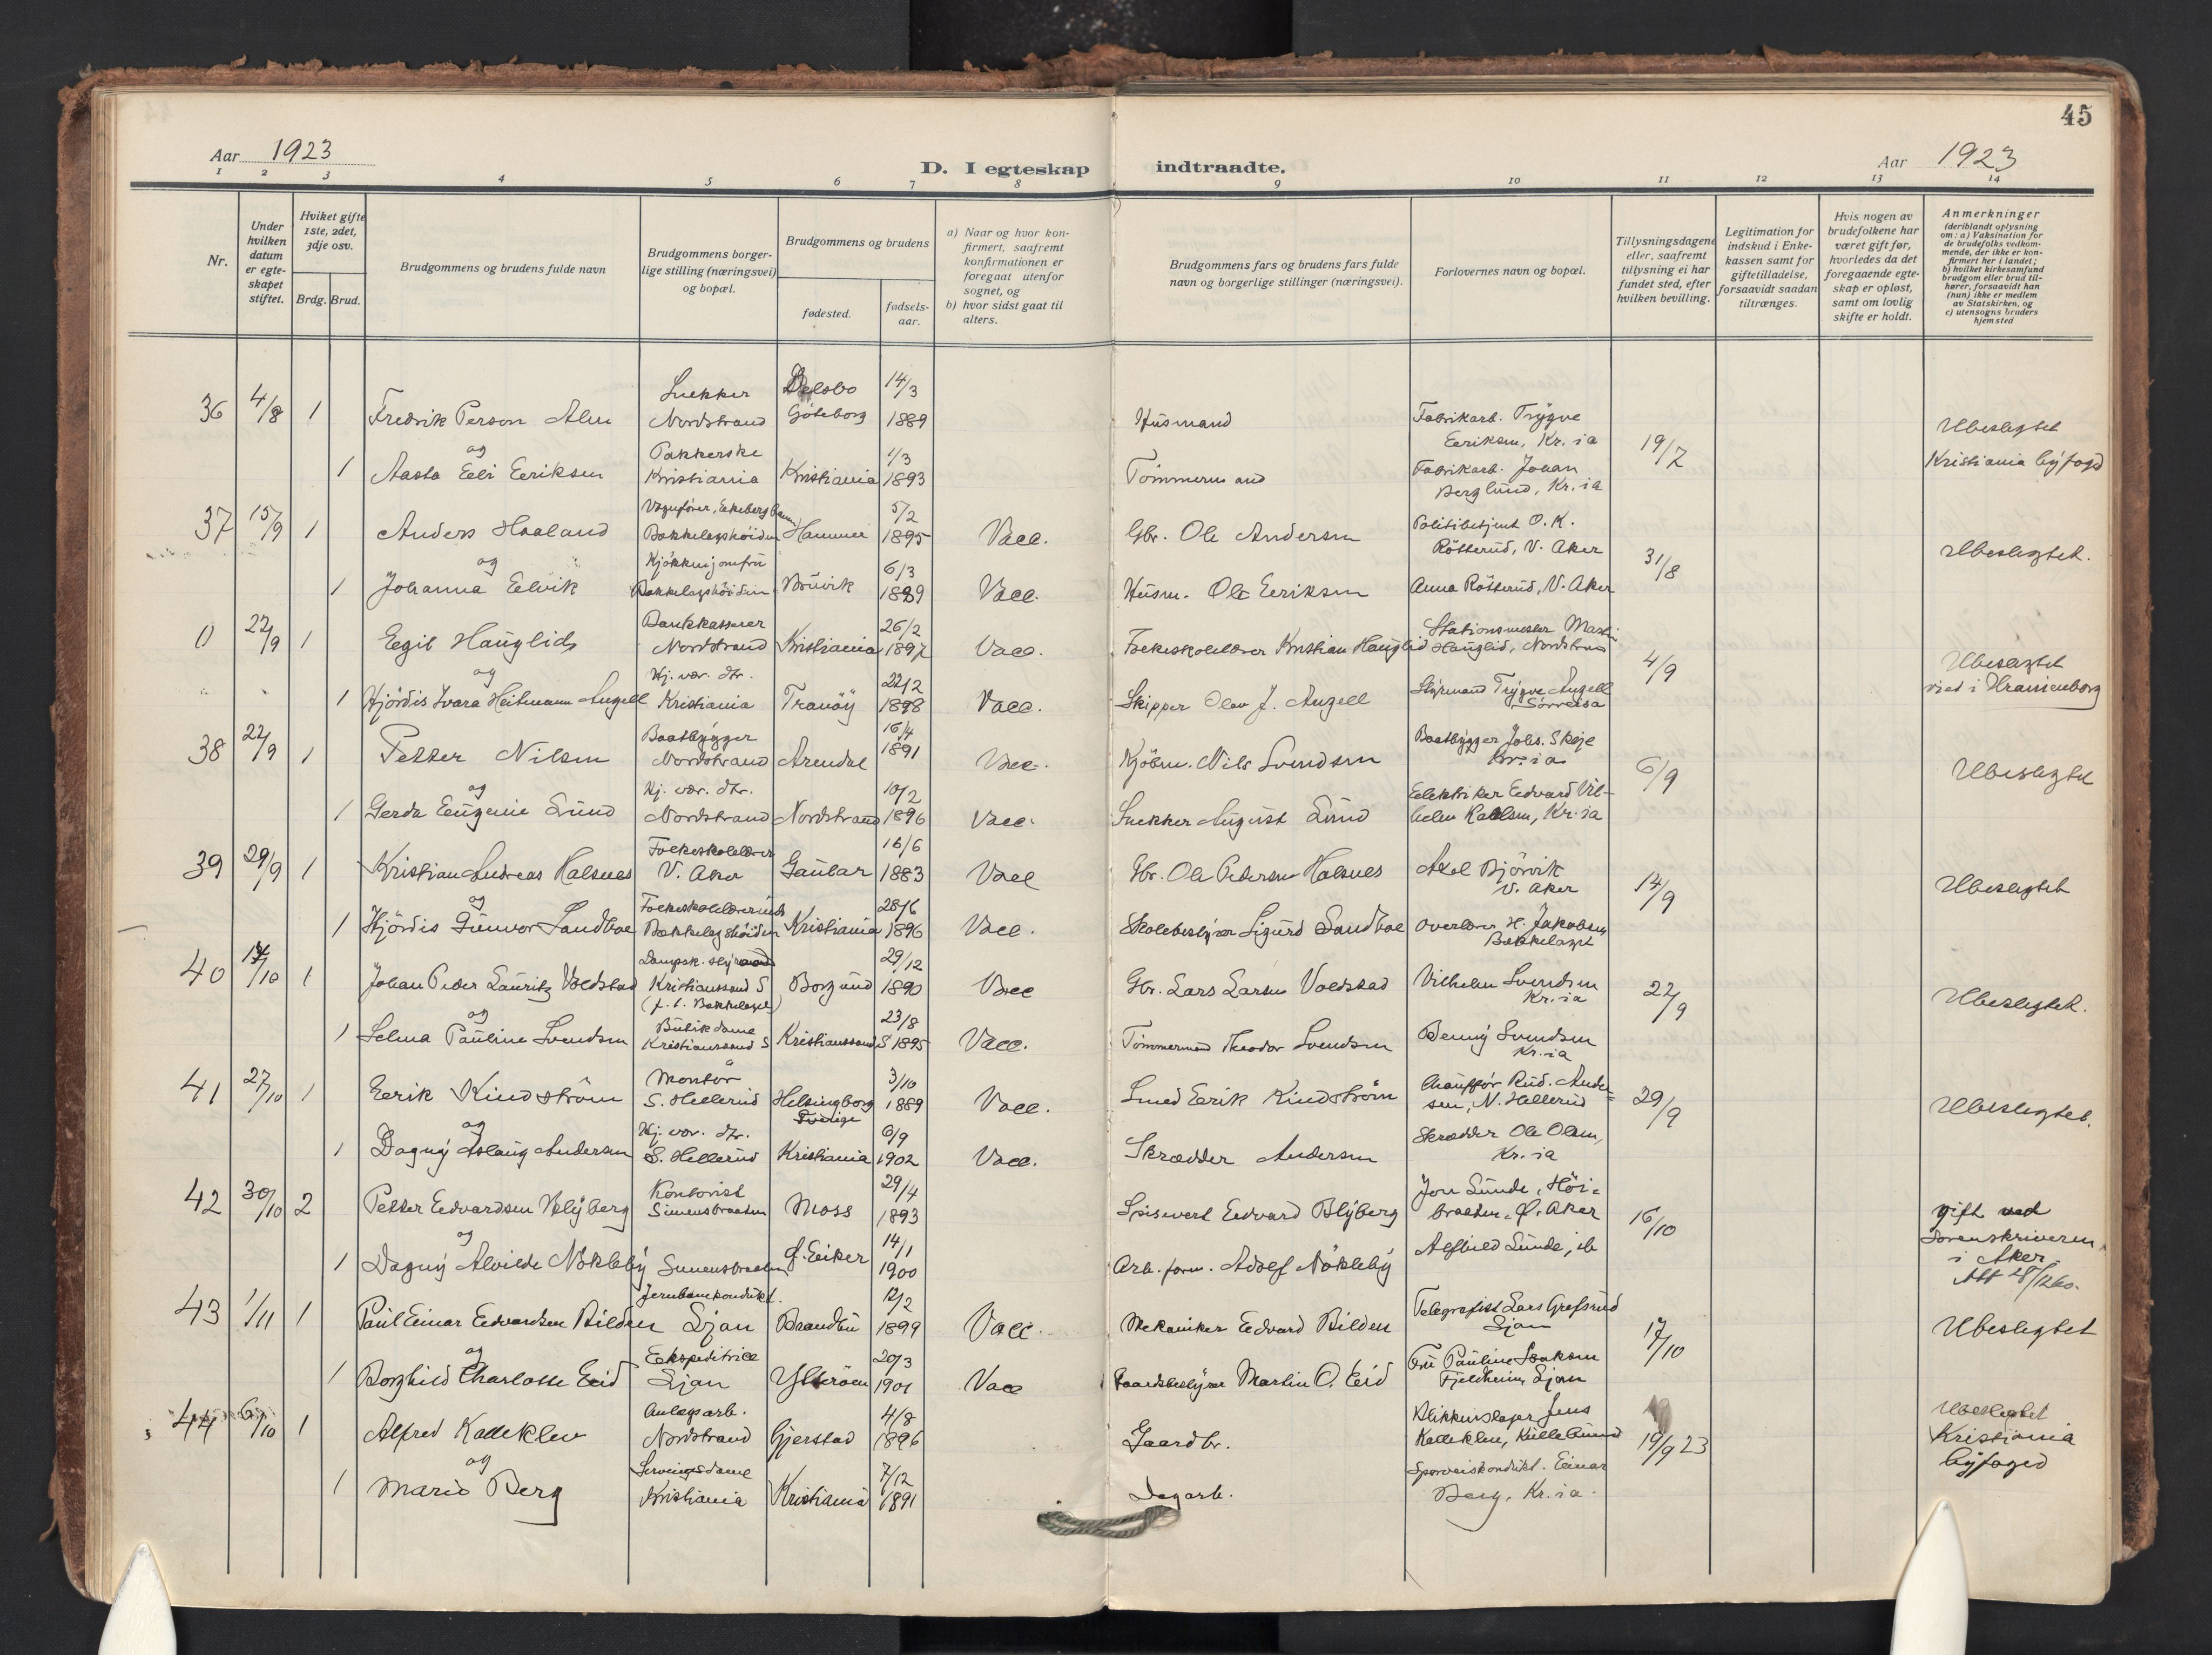 45
Aar 1923
D. I egteskap indtraadte.
Aar 1923
1 2 3 4 5 6 7 8 9 10 11 12 13 14
Nr.
Under hvilken datum er egteskapet stiftet.
Hvilket gifte 1ste, 2det, 3dje osv.
Brdg. Brud.
Brudgommens og brudens fulde navn
Brudgommens borgerlige stilling (næringsvei) og bopæl.
Brudgommens og brudens
fødested.
fødsels-aar.
a) Naar og hvor konfirmert, saafremt konfirmationen er foregaat utenfor sognet, og
b) hvor sidst gaat til alters.
Brudgommens fars og brudens fars fulde navn og borgerlige stillinger (næringsvei).
Forlovernes navn og bopæl.
Tillysningsdagene eller, saafremt tillysning ei har fundet sted, efter hvilken bevilling.
Legitimation for indskud i Enkekassen samt for giftetilladelse, forsaavidt saadan tiltrænges.
Hvis nogen av brudefolkene har været gift før, hvorledes da det foregaaende egteskap er opløst, samt om lovlig skifte er holdt.
Anmerkninger (deriblandt oplysning om: a) Vaksination for de brudefolks vedkommende, der ikke er konfirmert her i landet; b) hvilket kirkesamfund brudgom eller brud tilhører, forsaavidt han (hun) ikke er medlem av Statskirken, og c) utensogns bruders hjemsted
36 4/8 1 Fredrik Person Alm Snekker Nordstrand Delsbo Göteborg 14/3 1889 Husmand Fabrikarb. Trygve Eeriksen, Kr.ia 19/7 Ubeslegtet
og
1 Aasta Elvi Eeriksen Pakkerske Kristiania Kristiania 1/3 1893 Tömmermand Fabrikarb. Johan Berglund, Kr.ia Kristiania byfogd
37 15/9 1 Anders Haaland Vognfører, Ekebergbanen Bækkelagshöiden Hammer 5/2 1895 Vacc. Gbr. Ole Andersen Politibetjent O.K. Rötterud, V. Aker 31/8 Ubeslegtet.
og
1 Johanna Eelvik Kjökkenjomfru Bækkelagshöiden Bruvik 6/3 1889 Vacc. Husm. Ole Eeriksen Anna Rötterud, V. Aker
0 22/9 1 Eegil Hauglid Bankkasserer Nordstrand Kristiania 26/2 1897 Vacc. Folkeskolelærer Kristian Hauglid Stationsmester Martin Hauglid, Nordstrand 4/9 Ubeslegtet
og
1 Hjördis Ivara Heitmann Angell Hj. vær. dtr. Kristiania Tranöy 22/2 1898 Vacc. Skipper Olav J. Angell Styrmand Trygve Angell Sörreisa viet i Uranienborg
38 22/9 1 Petter Nilsen Baatbygger Nordstrand Arendal 16/4 1891 Vacc. Kjöbm. Nils Svendsen Baatbygger Johs. Skeje Kr.ia 6/9 Ubeslegtet
og
1 Gerda Eugenie Lund Hj. vær. dtr. Nordstrand Nordstrand 10/2 1896 Vacc. Snekker August Lund Elektriker Eedvard Vilhelm Karlsen, Kr.ia
39 29/9 1 Kristian Andreas Halsnes Folkeskolelærer V. Aker Gaular 16/6 1883 Vacc Gbr. Ole Pedersen Halsnes Axel Björvik V. Aker 14/9 Ubeslegtet
og
1 Hjördis Gunvor Sandboe Folkeskolelærerinde Bækkelagshöiden Kristiania 28/6 1896 Vacc. Skolebestyrer Sigurd Sandboe Overlærer H. Jakobsen Bækkelaget
40 14/10 1 Johan Peder Lauritz Voldstad Dampsk. styrmand Kristianssand S (f. t. Bækkelaget) Borgund 29/12 1890 Vacc Gbr. Lars Larsen Voldstad Vilhelm Svendsen Kr.ia 22/9 Ubeslegtet.
og
1 Selma Pauline Svendsen Butikdame Kristianssand S Kristianssand S 23/8 1895 Vacc. Tömmermand Theodor Svendsen Benny Svendsen Kr.ia
41 27/10 1 Eerik Kindström Montør S. Hellerud Helsingborg Sverige 3/10 1889 Vacc. Smed Eerik Kindström Chauffør Rud. Andersen, N. Hellerud 29/9 Ubeslegtet.
og
1 Dagny Aslaug Andersen Hj. vær. dtr. S. Hellerud Kristiania 6/9 1902 Vacc. Skrædder Andersen Skrædder Ole Olsen, Kr.ia
42 30/10 2 Petter Eedvardsen Blyberg Kontorist Simensbraaten Moss 29/4 1893 Spisevert Eedvard Blyberg Jon Sunde, Höibraaten, Ø. Aker 16/10 gift ved Sorenskriveren i Aker.
og
1 Dagny Alvilde Nökleby Simensbraaten Ø. Eiker 14/1 1900 Arb. form. Adolf Nökleby Alfhild Sunde, ib
43 1/11 1 Paul Einar Eedvardsen Bilden Jernbanekonduktør. Ljan Brandbu 12/2 1899 Vacc. Mekaniker Eedvard Bilden Telegrafist Lars Grefsrud Ljan 17/10 Ubeslegtet
og
1 Borghild Charlotte Eid Eekspeditrice Ljan Ytterøen 20/3 1901 Vacc Gaardsbestyrer Martin O. Eid Fru Pauline Isaksen Fjeldheim, Ljan
44 6/10 1 Alfred Kalleklev Anlegsarb. Nordstrand Gjerstad 4/8 1896 Gaardbr. Blikkenslager Jens Kalleklev, Killebund 19/9 23 Ubeslegtet Kristiania byfoged
og
1 Marie Berg Serveringsdame Kristiania Kristiania 7/12 1891 Dagarb. Sporveiskondukt. Einar Berg, Kr.ia.